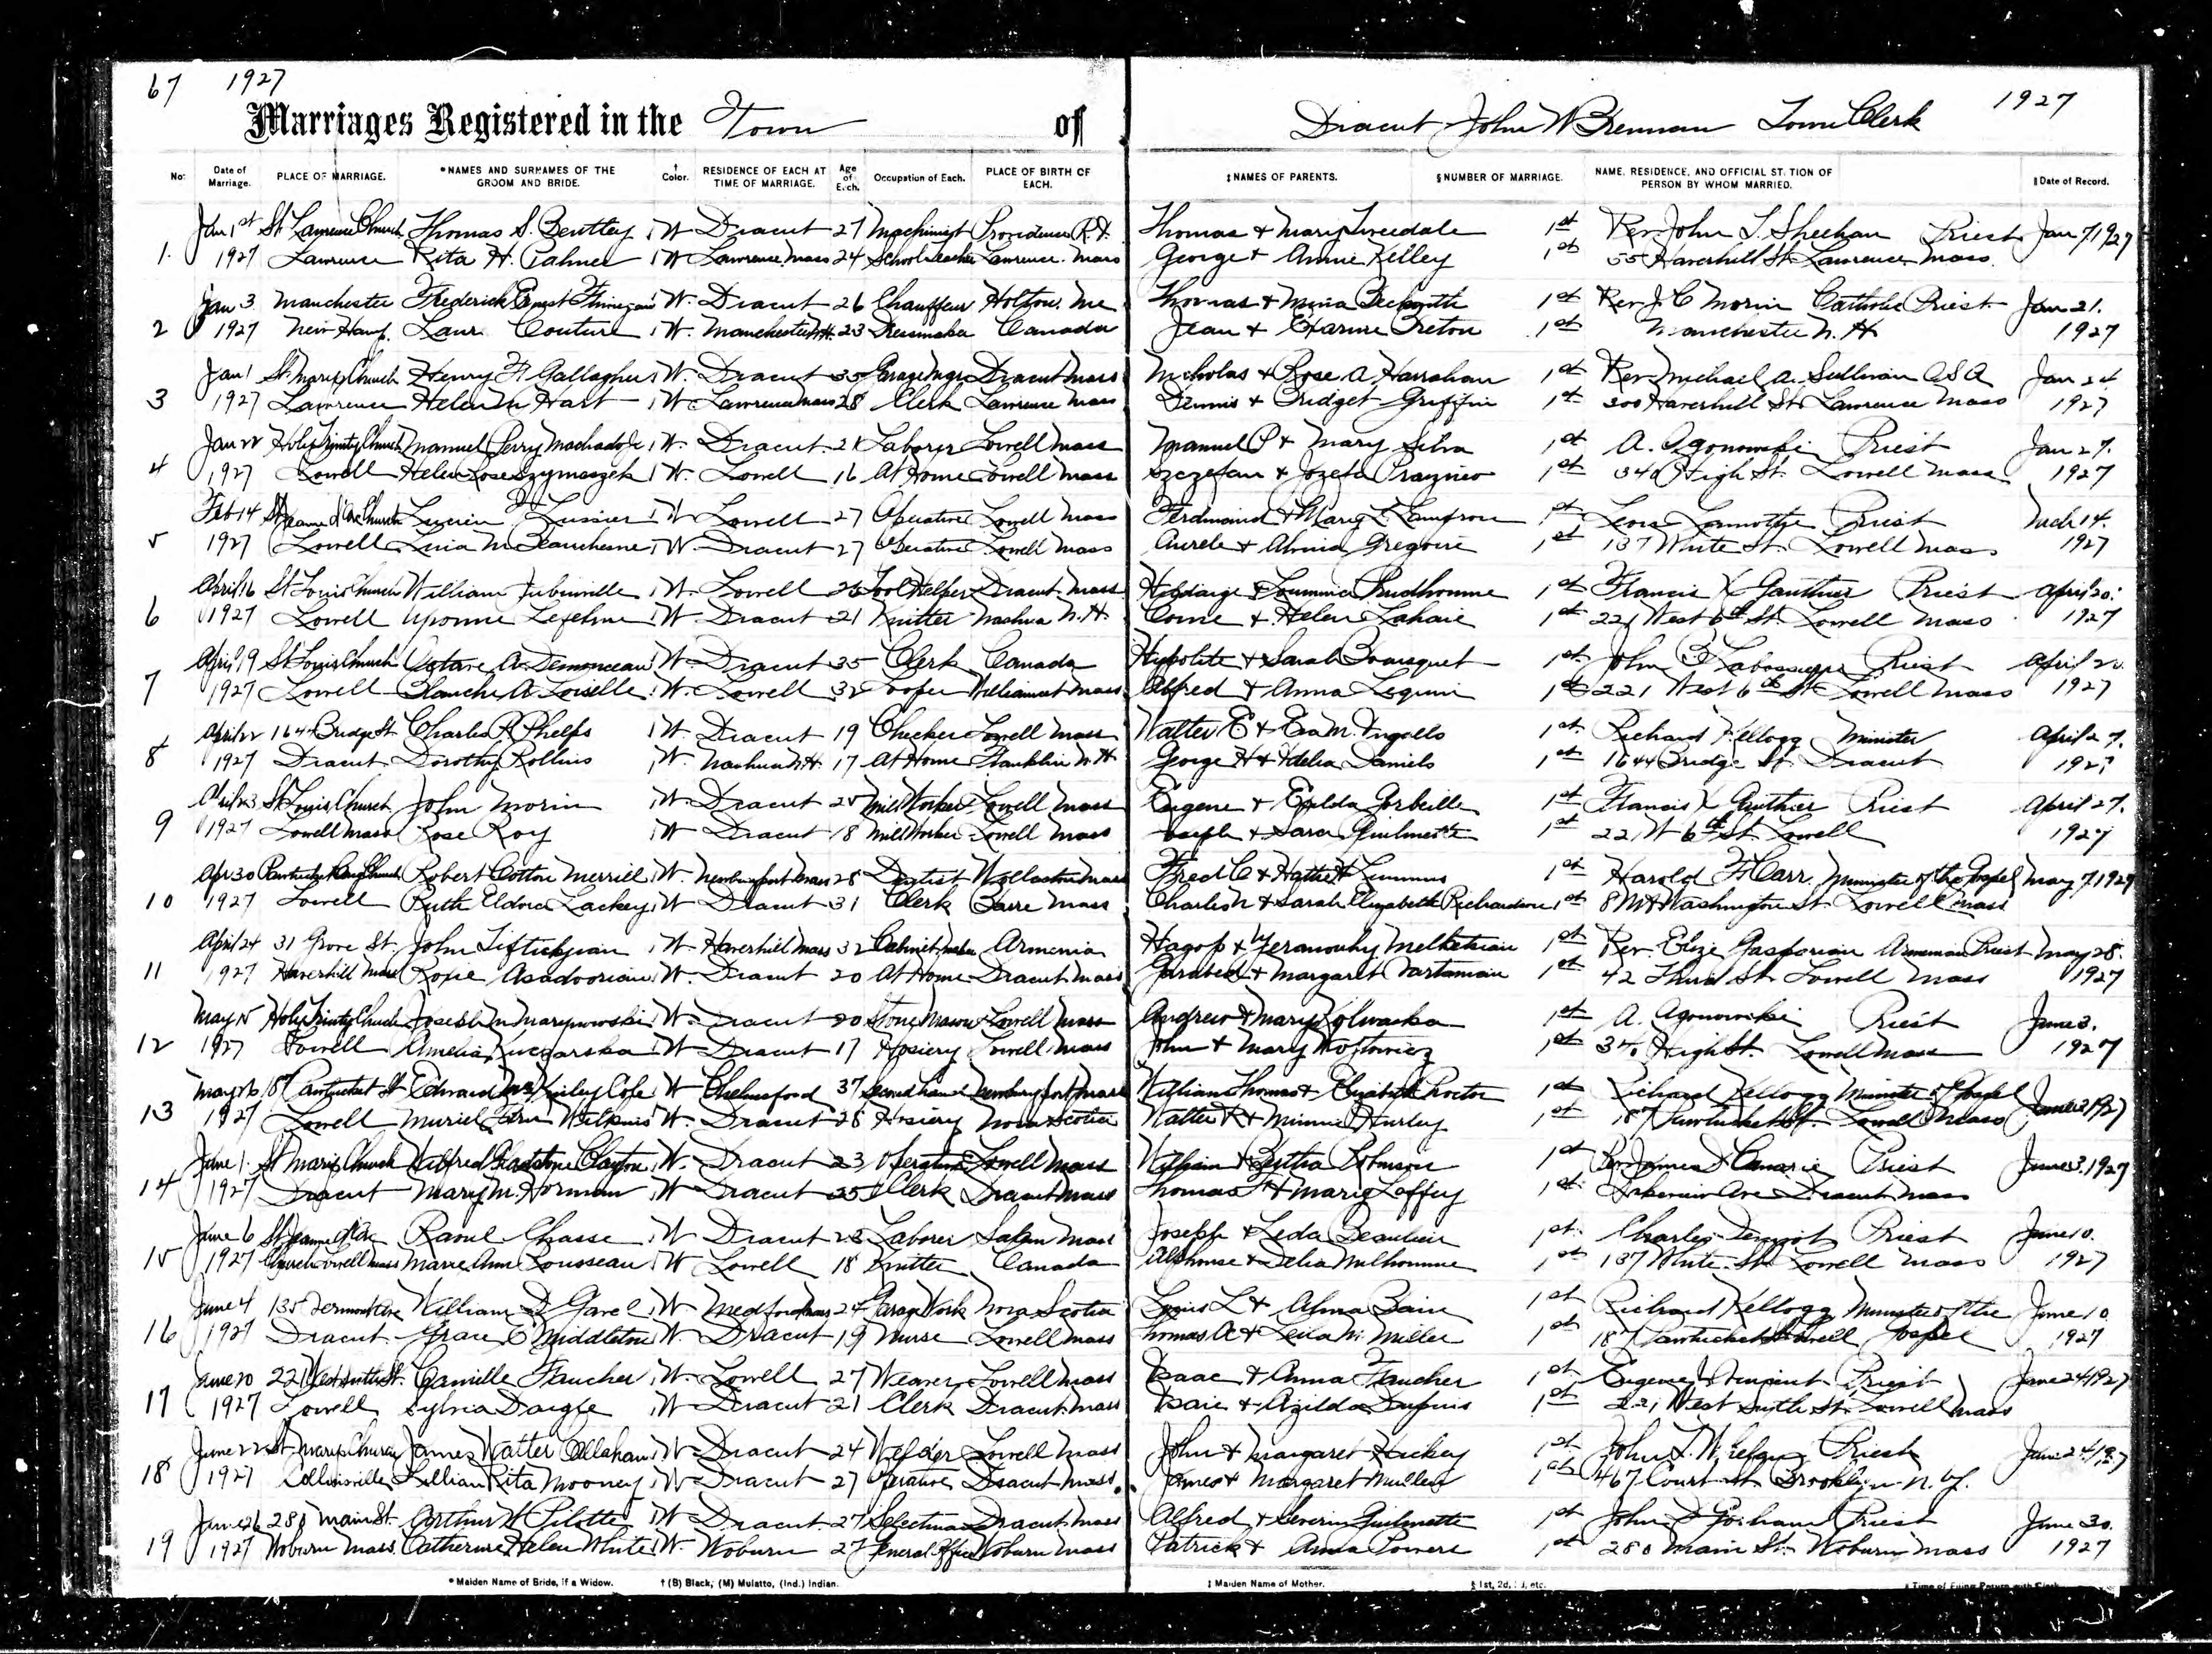 67 1927
Marriages Registered in the Town of Dracut John W Brennan Town Clerk 1927
No. Date of Marriage. PLACE OF MARRIAGE. *NAMES AND SURNAMES OF THE GROOM AND BRIDE. † Color. RESIDENCE OF EACH AT TIME OF MARRIAGE. Age of Each. Occupation of Each. PLACE OF BIRTH OF EACH. ‡NAMES OF PARENTS. §NUMBER OF MARRIAGE. NAME, RESIDENCE, AND OFFICIAL STATION OF PERSON BY WHOM MARRIED. ‖Date of Record.
Jan 1st St Lawrence Church Thomas S. Bentley W Dracut 27 Machinist Providence R.I. Thomas & Mary Tweedale 1st Rev. John J. Sheehan Priest Jan 7, 1927
1. 1927 Lawrence Rita H. Palmer W Lawrence Mass 24 School teacher Lawrence Mass George & Annie Kelley 1st 55 Haverhill St Lawrence Mass
Jan 3 Manchester Frederick Ernest W. Dracut 26 Chauffeur Me Thomas & Mina Beckwith 1st Rev J. C Morin Catholic Priest Jan 21.
2 1927 New Hamp. Laur Couture W. Manchester N.H. 23 Dressmaker Canada Jean & Breton 1st Manchester N. H 1927
Jan 1 St Marys Church Henry F. Gallagher W. Dracut 35 Garage Mgr Dracut Mass Nicholas & Rose A Harrahan 1st Rev Michael A. Sullivan O S A Jan 24
3 1927 Lawrence Helen M Hart W Lawrence Mass 28 Clerk Lawrence Mass Dennis & Bridget Griffin 1st 300 Haverhill St Lawrence Mass 1927
Jan 22 Holy Trinity Church Manuel Perry Machado Jr W. Dracut 21 Laborer Lowell Mass Manuel P & Mary Silva 1st A. Ogonowski Priest Jan 27.
4 1927 Lowell Helen Rose Szymaszek W. Lowell 16 At Home Lowell Mass Szczefan & Jozefa 1st 340 High St. Lowell Mass 1927
Feb 14 St Jeanne d'Arc Church Lucien Lussier W Lowell 27 Operative Lowell Mass Ferdinand & Mary L. 1st Leon Lamothe Priest Mch 14.
5 1927 Lowell M Beauchesne W. Dracut 27 Operative Lowell Mass Aurele & Gregoire 1st 137 White St. Lowell Mass 1927
April 16 St Louis Church William Jubinville W. Lowell 25 Tool Helper Dracut Mass & Prudhomme 1st Francis X Gauthier Priest April 20.
6 1927 Lowell Lefebvre W. Dracut 21 Knitter Nashua N.H. & Helen Lahaie 1st 221 West 6th St. Lowell Mass 1927
April 19 St Louis Church Octave A. Demonceau W. Dracut 35 Clerk Canada Hypolite & Sarah Bousquet 1st John B Labossiere Priest April
7 1927 Lowell Blanche A. Loiselle W. Lowell 32 Looper Mass Alfred & Anna 1st 221 West 6th St Lowell Mass 1927
April 22 1644 Bridge St Charles R Phelps W. Dracut 19 Checker Lowell Mass Walter E & Eva M. Ingalls 1st Richard Kellogg Minister April 27.
8 1927 Dracut Dorothy Rollins W. Nashua N.H. 17 At Home Franklin N.H George H & Idelia Daniels 1st 1644 Bridge St. Dracut 1927
April 23 St Louis Church John Morin W Dracut 25 Mill Worker Lowell Mass Eugene & Exilda Gorbeille 1st Francis X Gauthier Priest April 27.
9 1927 Lowell Mass Rose Roy W Dracut 18 Mill Worker Lowell Mass Joseph & Sara Guilmette 1st 221 W 6th St. Lowell 1927
Apr 30 Pawtucket Cong Church Robert Cotton Merrill W. Newburyport Mass 28 Dentist Wollaston Mass Fred C & Hattie H Lemmus 1st Harold F. Carr, Minister of the Gospel May 7, 1927
10 1927 Lowell Ruth Eldora Lackey W Dracut 31 Clerk Barre Mass Charles N & Sarah Elizabeth Richardson 1st 8 Mt Washington St. Lowell Mass
April 24 31 Grove St. John W. Haverhill Mass 32 Cabinet maker Armenia Hagop & Yeranouhy Melketian 1st Rev. Gasparian Armenian Priest May 28.
11 1927 Haverhill Mass Rose Asadoorian W. Dracut 20 At Home Dracut Mass Garabed & Margaret Vartanian 1st 42 Third St. Lowell Mass 1927
May 15 Holy Trinity Church Joseph M Marynowski W. Dracut 20 Stone Mason Lowell Mass Andrew & Mary 1st A. Ogonowski Priest June 3.
12 1927 Lowell Amelia Kuczarska W Dracut 17 Hosiery Lowell Mass John & Mary Wojtowicz 1st 340 High St. Lowell Mass 1927
May 26 187 Pawtucket St Edward McKinley Cope W Chelmsford 37 Second hand Newburyport Mass William Thomas & Elizabeth Proctor 1st Richard Kellogg Minister of Gospel June 3 1927
13 1927 Lowell Muriel Fern Wilkins W. Dracut 28 Hosiery Nova Scotia Walter R & Minnie Hurley 1st 187 Pawtucket St. Lowell Mass
June 1 St Marys Church Wilfred Gladstone Clayton W. Dracut 23 Operative Lowell Mass William & Bertha Johnson 1st Rev James Priest June 3, 1927
14 1927 Dracut Mary M. Gorman W Dracut 25 Clerk Dracut Mass Thomas F & Mary Laffey 1st Lakeview Ave Dracut Mass
June 6 St Jeanne d'Arc Raoul Chasse W Dracut 23 Laborer Salem Mass Joseph & Leda Beaulieu 1st Charles Denizot Priest June 10.
15 1927 Church Lowell Mass Marie Ann Rousseau W Lowell 18 Knitter Canada Alphonse & Delia Milhomme 1st 137 White St. Lowell Mass 1927
June 4 135 Vermont Ave William D Gavel W Medford Mass 24 Garage Work Nova Scotia Louis L & Alma Bain 1st Richard Kellogg Minister of the June 10
16 1927 Dracut Grace E Middleton W. Dracut 19 Nurse Lowell Mass Thomas A & Leila M. Miller 1st 187 Pawtucket St Lowell Gospel 1927
June 20 221 West Sixth St. Camille Faucher W. Lowell 27 Weaver Lowell Mass Isaac & Anna Faucher 1st Eugene J. Vincent Priest June 24, 1927
17 1927 Lowell Sylvia Daigle W Dracut 21 Clerk Dracut Mass Isaie & Azilda Dupuis 1st 221 West Sixth St. Lowell Mass
June 22 St Marys Church James Walter Callahan W Dracut 24 Welder Lowell Mass John & Margaret Hickey 1st John J. Priest June 24 1927
18 1927 Collinsville Lillian Rita Mooney W Dracut 27 Operative Dracut Mass. James & Margaret Mullen 1st 467 Court St Brooklyn N. Y.
June 26 280 Main St. Arthur W Pilotte W Dracut 27 Selectman Dracut Mass Alfred & Severin Guilmette 1st John Priest June 30.
19 1927 Woburn Mass. Catherine Helen White W. Woburn 27 General Office Woburn Mass Patrick & Anna Towers 1st 280 Main St. Woburn Mass 1927
*Maiden Name of Bride, if a Widow. † (B) Black; (M) Mulatto, (Ind.) Indian. ‡ Maiden Name of Mother. § 1st, 2d, 3d, etc.